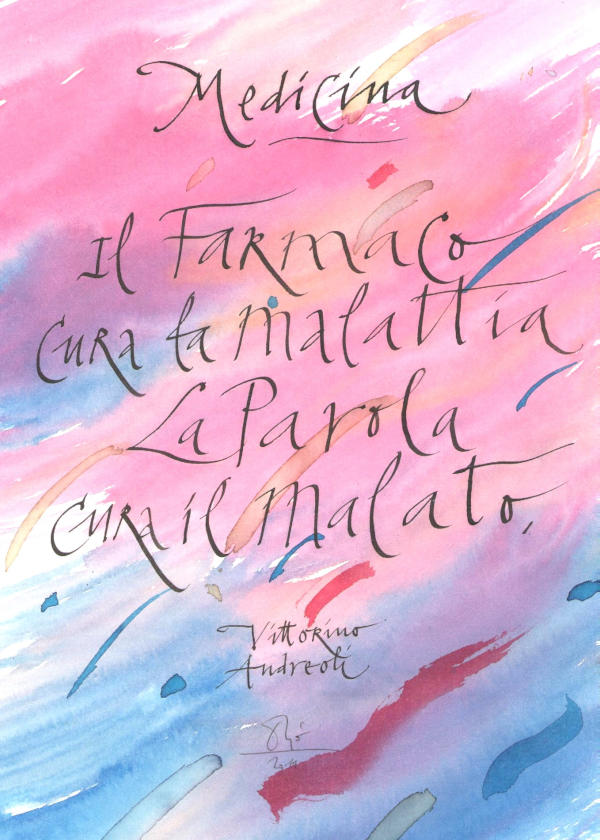 Medicina
Il Farmaco
cura la malattia
La Parola
cura il malato,
Vittorino
Andreoli